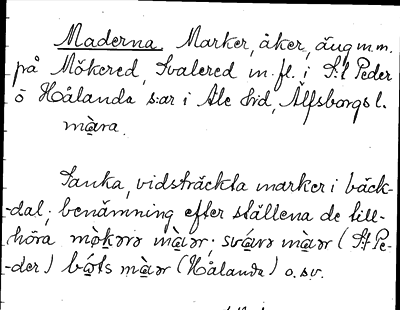 Maderna. Marker, åker, äng m.m.
på Mökered, Svalered m.fl. i S:t Peder
o Hålanda s:ar i Ale hd, Älfsborgs l.
màra.
Sanka, vidsträckta marker i bäck-
-dal; benämning efter ställena de till-
höra mö̀kərə màər; sváʌrə màər (St Pe-
-der) bǻts màər (Hålanda) o.s.v.